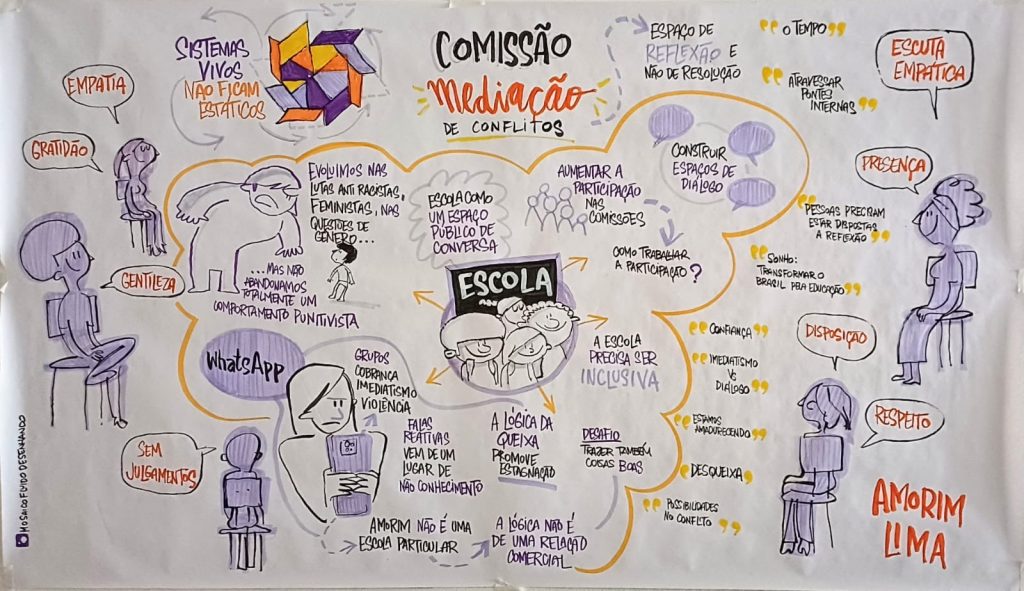 SISTEMAS
VIVOS
NÃO FICAM
ESTÁTICOS
COMISSÃO
MEDIAÇÃO
DE CONFLITOS
ESPAÇO DE
REFLEXÃO E
NÃO DE RESOLUÇÃO
"O TEMPO"
"ATRAVESSAR
PONTES
INTERNAS"
ESCUTA
EMPÁTICA
EMPATIA
GRATIDÃO
GENTILEZA
SEM
JULGAMENTOS
EVOLUIMOS NAS
LUTAS ANTI RACISTAS,
FEMINISTAS, NAS
QUESTÕES DE
GÊNERO...
...MAS NÃO
ABANDONAMOS
TOTALMENTE UM
COMPORTAMENTO PUNITIVISTA
ESCOLA COMO
UM ESPAÇO
PÚBLICO DE
CONVERSA
AUMENTAR A
PARTICIPAÇÃO
NAS
COMISSÕES
COMO TRABALHAR
A PARTICIPAÇÃO?
CONSTRUIR
ESPAÇOS DE
DIÁLOGO
ESCOLA
A ESCOLA
PRECISA SER
INCLUSIVA
WhatsApp
GRUPOS
COBRANÇA
IMEDIATISMO
VIOLÊNCIA
FALAS
REATIVAS
VEM DE UM
LUGAR DE
NÃO CONHECIMENTO
A LÓGICA DA
QUEIXA
PROMOVE
ESTAGNAÇÃO
DESAFIO
TRAZER TAMBÉM
COISAS BOAS
AMORIM NÃO É UMA
ESCOLA PARTICULAR
A LÓGICA NÃO É
DE UMA RELAÇÃO
COMERCIAL
PRESENÇA
"PESSOAS PRECISAM
ESTAR DISPOSTAS
A REFLEXÃO"
"SONHO:
TRANSFORMAR O
BRASIL PELA EDUCAÇÃO"
"CONFIANÇA"
"IMEDIATISMO
VS
DIÁLOGO"
"ESTAMOS
AMADURECENDO"
"DESQUEIXA"
"POSSIBILIDADES
NO CONFLITO"
DISPOSIÇÃO
RESPEITO
AMORIM
LIMA
MOSAICO FLUIDO DESENHANDO